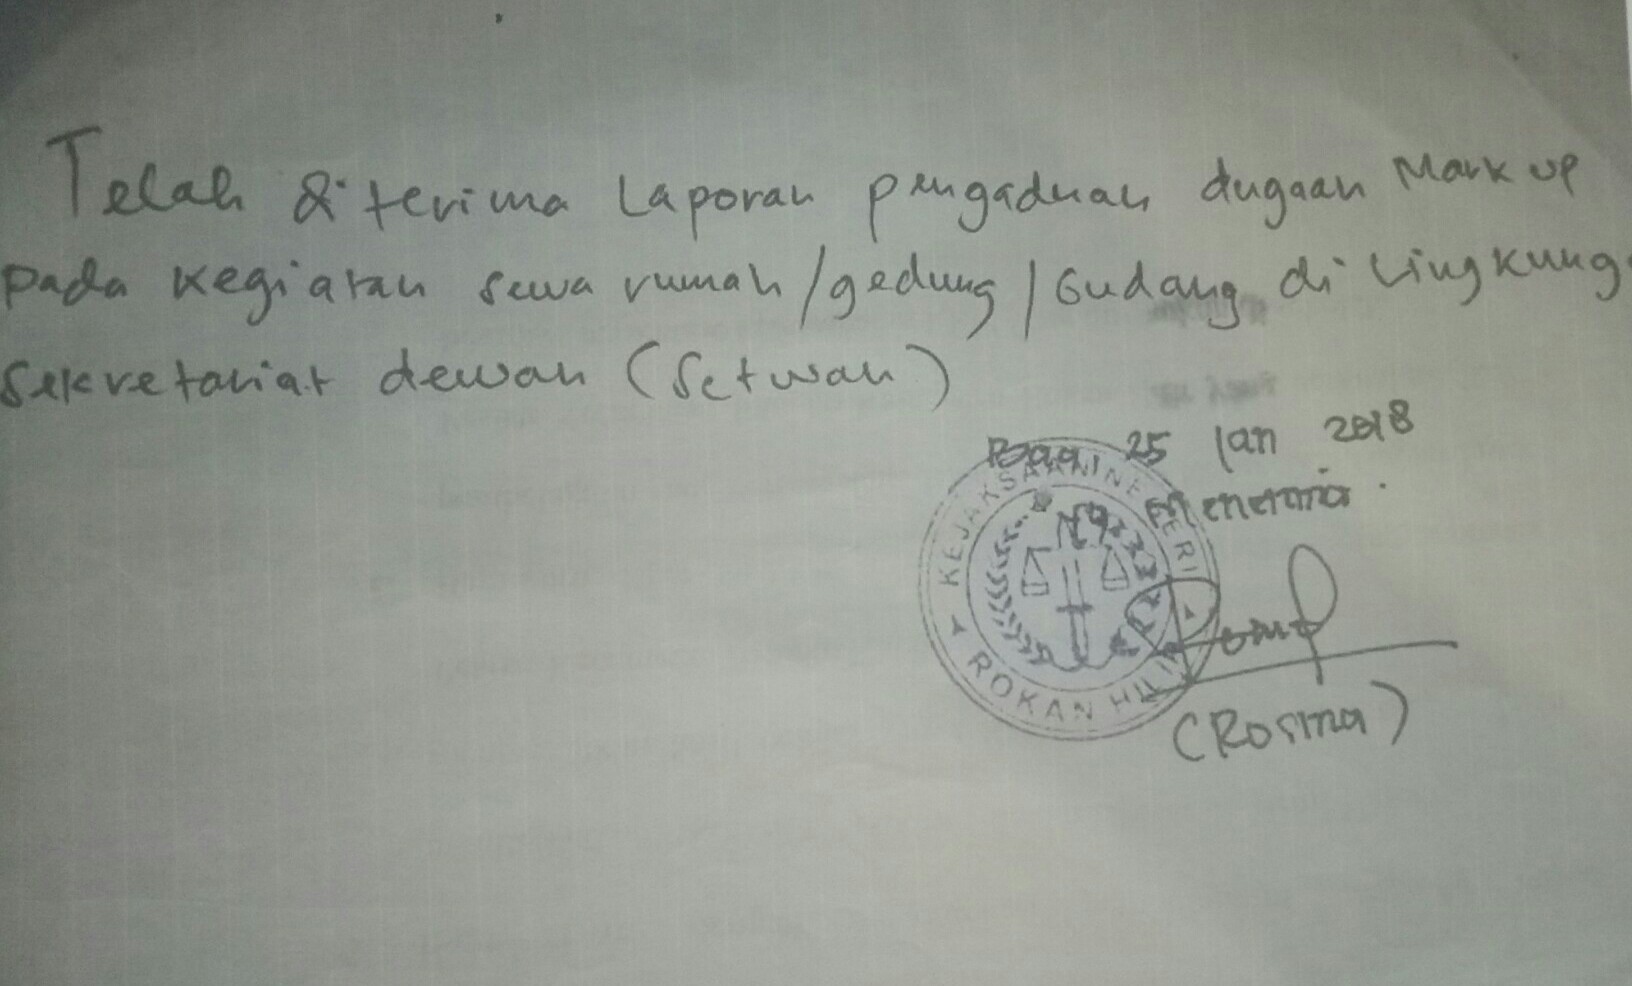 Telah diterima Laporan pengaduan dugaan Mark up
pada kegiatan sewa rumah/gedung/Gudang di Lingkung
Sekretariat dewan (Setwan)
25 Jan 2018
Yg Menerima.
KEJAKSAAN NEGERI
ROKAN HILIR
(Rosma)